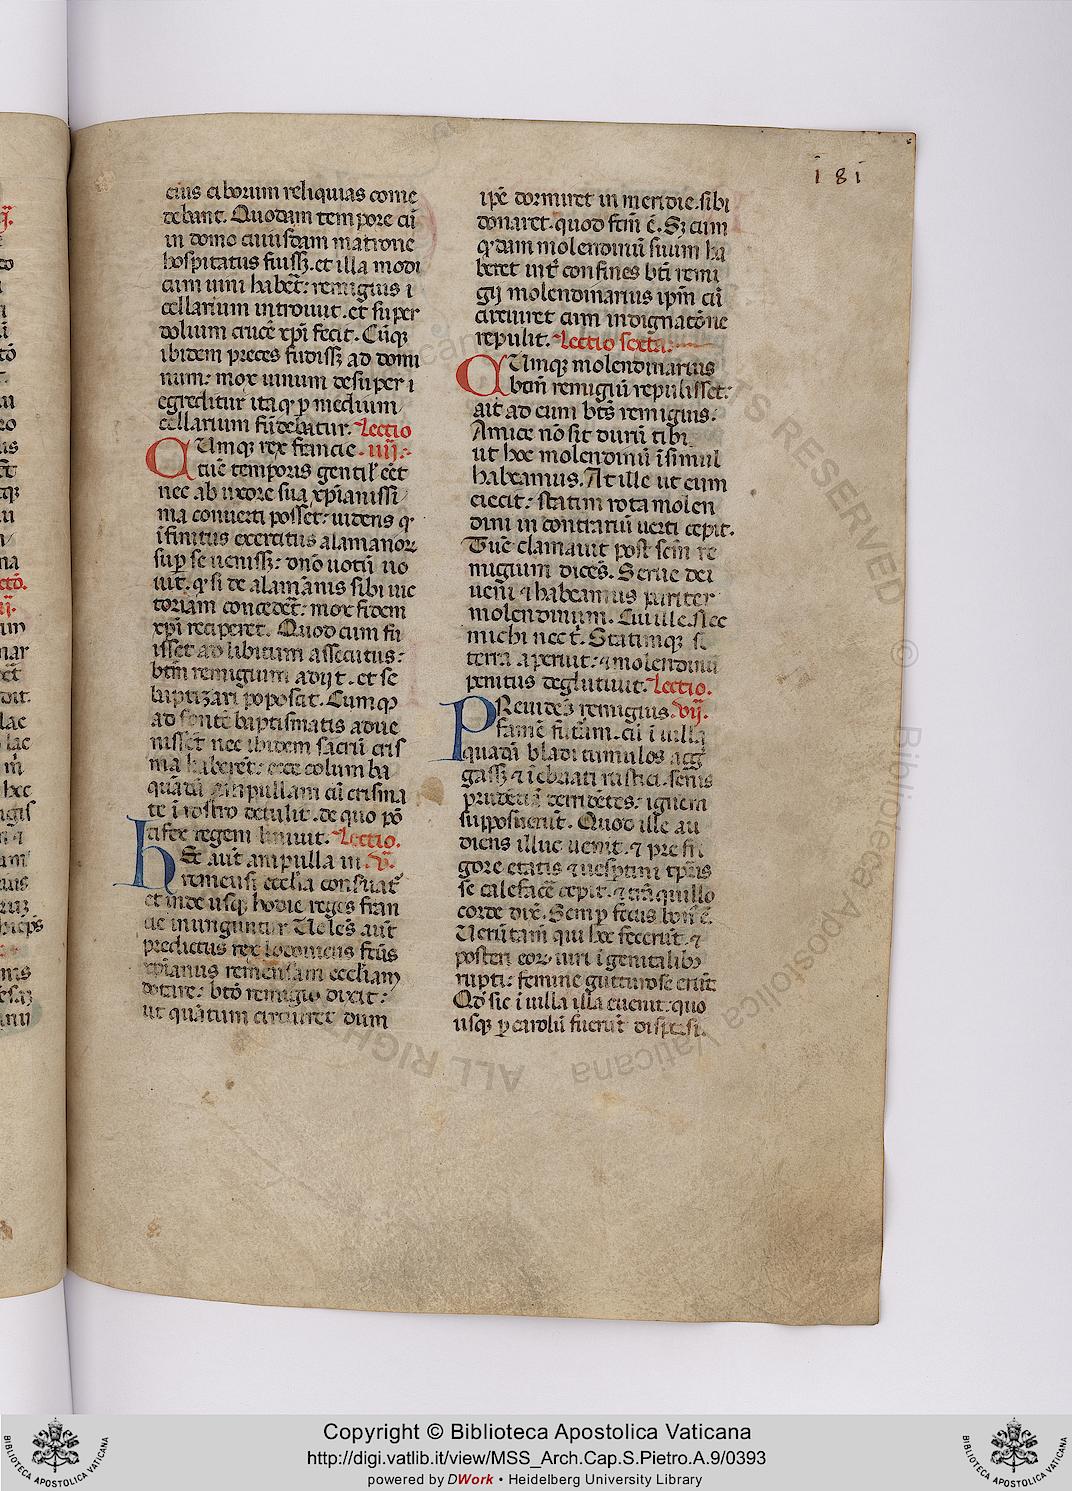 181
eius ciborum reliquias come
debant. Quodam tempore cū
in domo cuiusdam matrone
hospitatus fuissꝫ. et illa modi
cum uini habet̄: remigius i
cellarium introiuit. et super
dolium crucē xp̄i fecit. Cūqꝫ
ibidem preces fudissꝫ ad domi
num: mox uinum desuper i
egreditur itaqꝫ ꝑ medium
cellarium fūdebatur. Lectio
CUmqꝫ rex francie .iiij.
tūc temporis gentil' eēt
nec ab uxore sua xp̄ianissi
ma conuerti posset: uidens qꝫ
īfinitus exercitus alamanoꝝ
suꝑ se uenissꝫ: dn̄o uotū uo
uit. qꝫ si de alamānis sibi uic
toriam concedet̄: mox fidem
xp̄i reciperet. Quod cum fu
isset ad libitum assecutus:
btm̄ remigium adijt. et se
baptizari poposcit. Cumqꝫ
ad fontē baptismatis adue
nisset nec ibidem sacrū cris
ma haberet̄: ecce columba
quādā ampullam cū crisma
te ī rostro detulit. de quo pō
tifex regem liniuit. Lectio.
HEc aut̄ ampulla in .v̄.
remensi ecclīa conẜuat̄
et inde usqꝫ hodie reges fran
cie inunguntur Uolēs aut̄
predictus rex lodouicus fctūs
xp̄ianus remensam ecclīam
dotare: btō remigio dixit:
ut quātum circuiret dum
ip̄e dormiret in meridie. sibi
donaret. quod fctm̄ ē. Sꝫ cum
qꝫdam molendinū suum ha
beret int̄ confines btī remi
gij molendinarius ip̄m cū
circuiret cum indignatōne
repulit. Lectio sexta.
CUmqꝫ molendinarius
btm̄ remigiū repulisset:
ait ad eum btūs remigius.
Amice nō sit durū tibi
ut hoc molendinū īsimul
habeamus. At ille ut eum
eiecit: statim rota molen
dini in contrariū uerti cepit.
Tūc clamauit post scm̄ re
migium dicēs. Serue dei
ueni ⁊ habeamus pariter
molendinum. Cui ille. Nec
michi nec t̄. Statimqꝫ
terra aperuit: ⁊ molendinū
penitus deglutiuit. Lectio.
PReuidēs remigius .vij.
famē futurā. cū ī uilla
quadā bladi tumulos agḡ
gassꝫ ⁊ īebriati rustici. senis
prudētiā deridētes: ignem
supposuerūt. Quod ille au
diens illuc uenit. ⁊ pre fri
gore etatis ⁊ uesꝑtini tp̄ris
se calefacē cepit. ⁊ trāquillo
corde dix̄. Semꝑ focus bon' ē.
Uerūtam̄ qui hoc fecerūt. ⁊
posteri eoꝝ. uiri ī genitalibꝫ
rupti: femine gutturose erūt
Qd̄ sic ī uilla illa euenit. quo
usqꝫ ꝑ carolū fuerūt disꝑsi.
Copyright © Biblioteca Apostolica Vaticana
http://digi.vatlib.it/view/MSS_Arch.Cap.S.Pietro.A.9/0393
powered by DWork • Heidelberg University Library
BIBLIOTECA APOSTOLICA VATICANA
BIBLIOTECA APOSTOLICA VATICANA
© Biblioteca Apostolica Vaticana ALL RIGHTS RESERVED